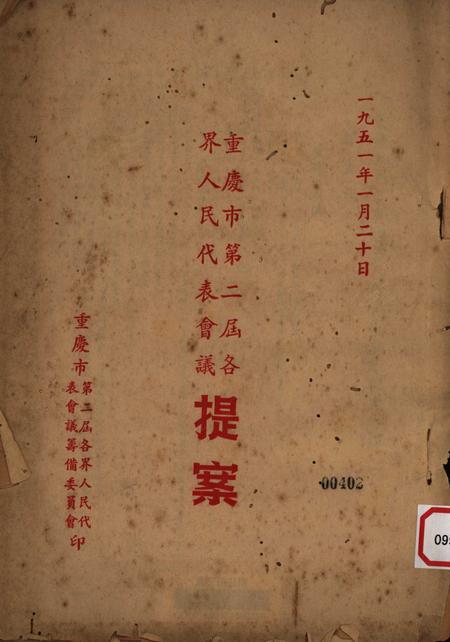 一九五一年一月二十日
重慶市第二屆各
界人民代表會議
提案
重慶市第二屆各界人民代
表會議籌備委員會印
00402